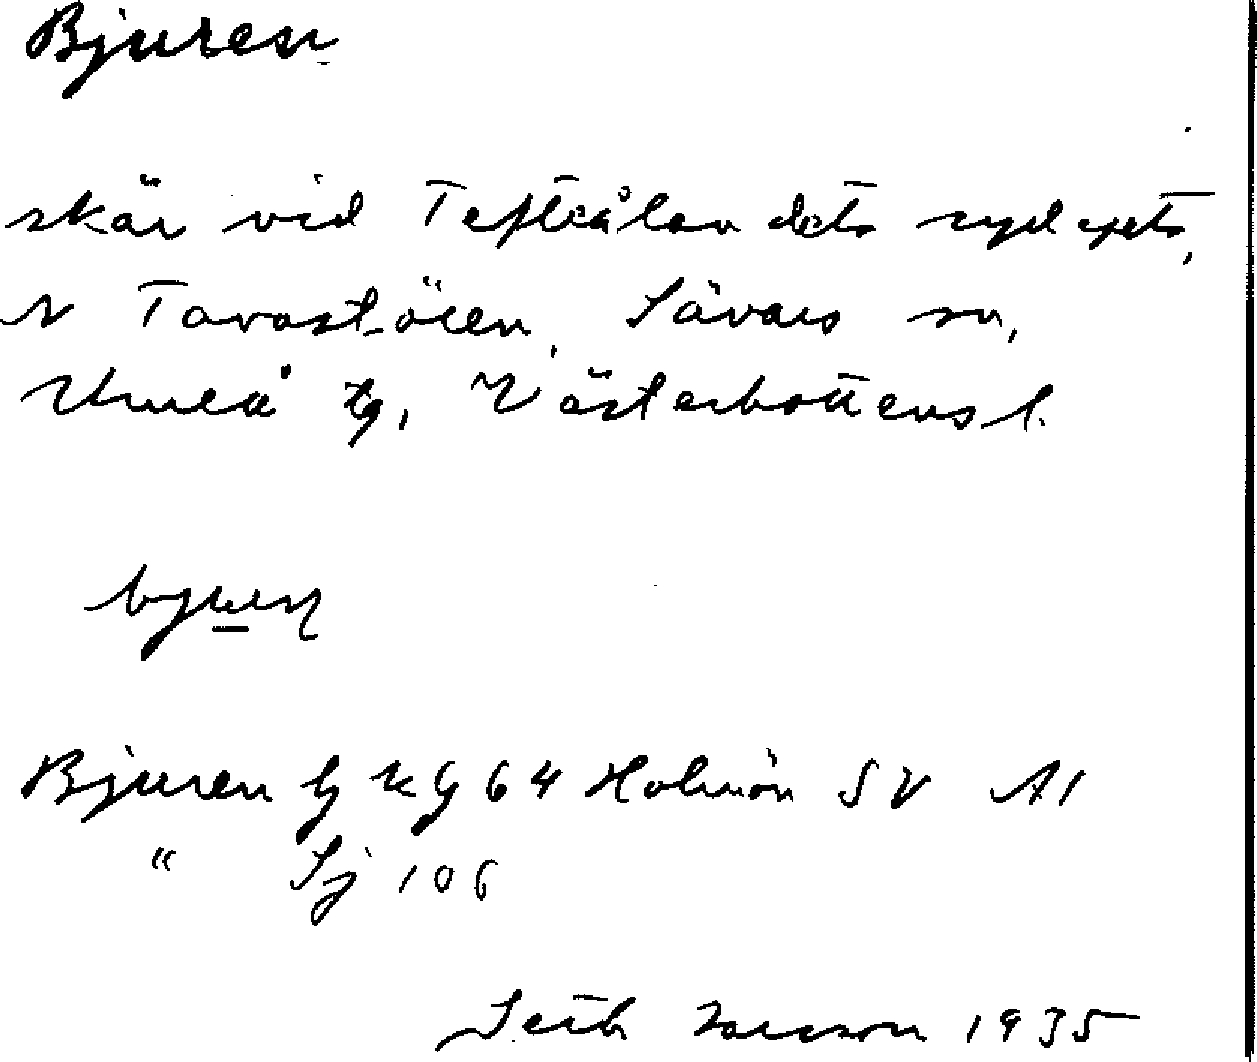 Bjuren
skär vid Tefteålandets sydspets,
N Tavastören, Sävars sn,
Umeå tg, Västerbottens l.
Bjuren Gj kg 64 Holmön SV A1
" Sj 106
Seth Larsson 1935